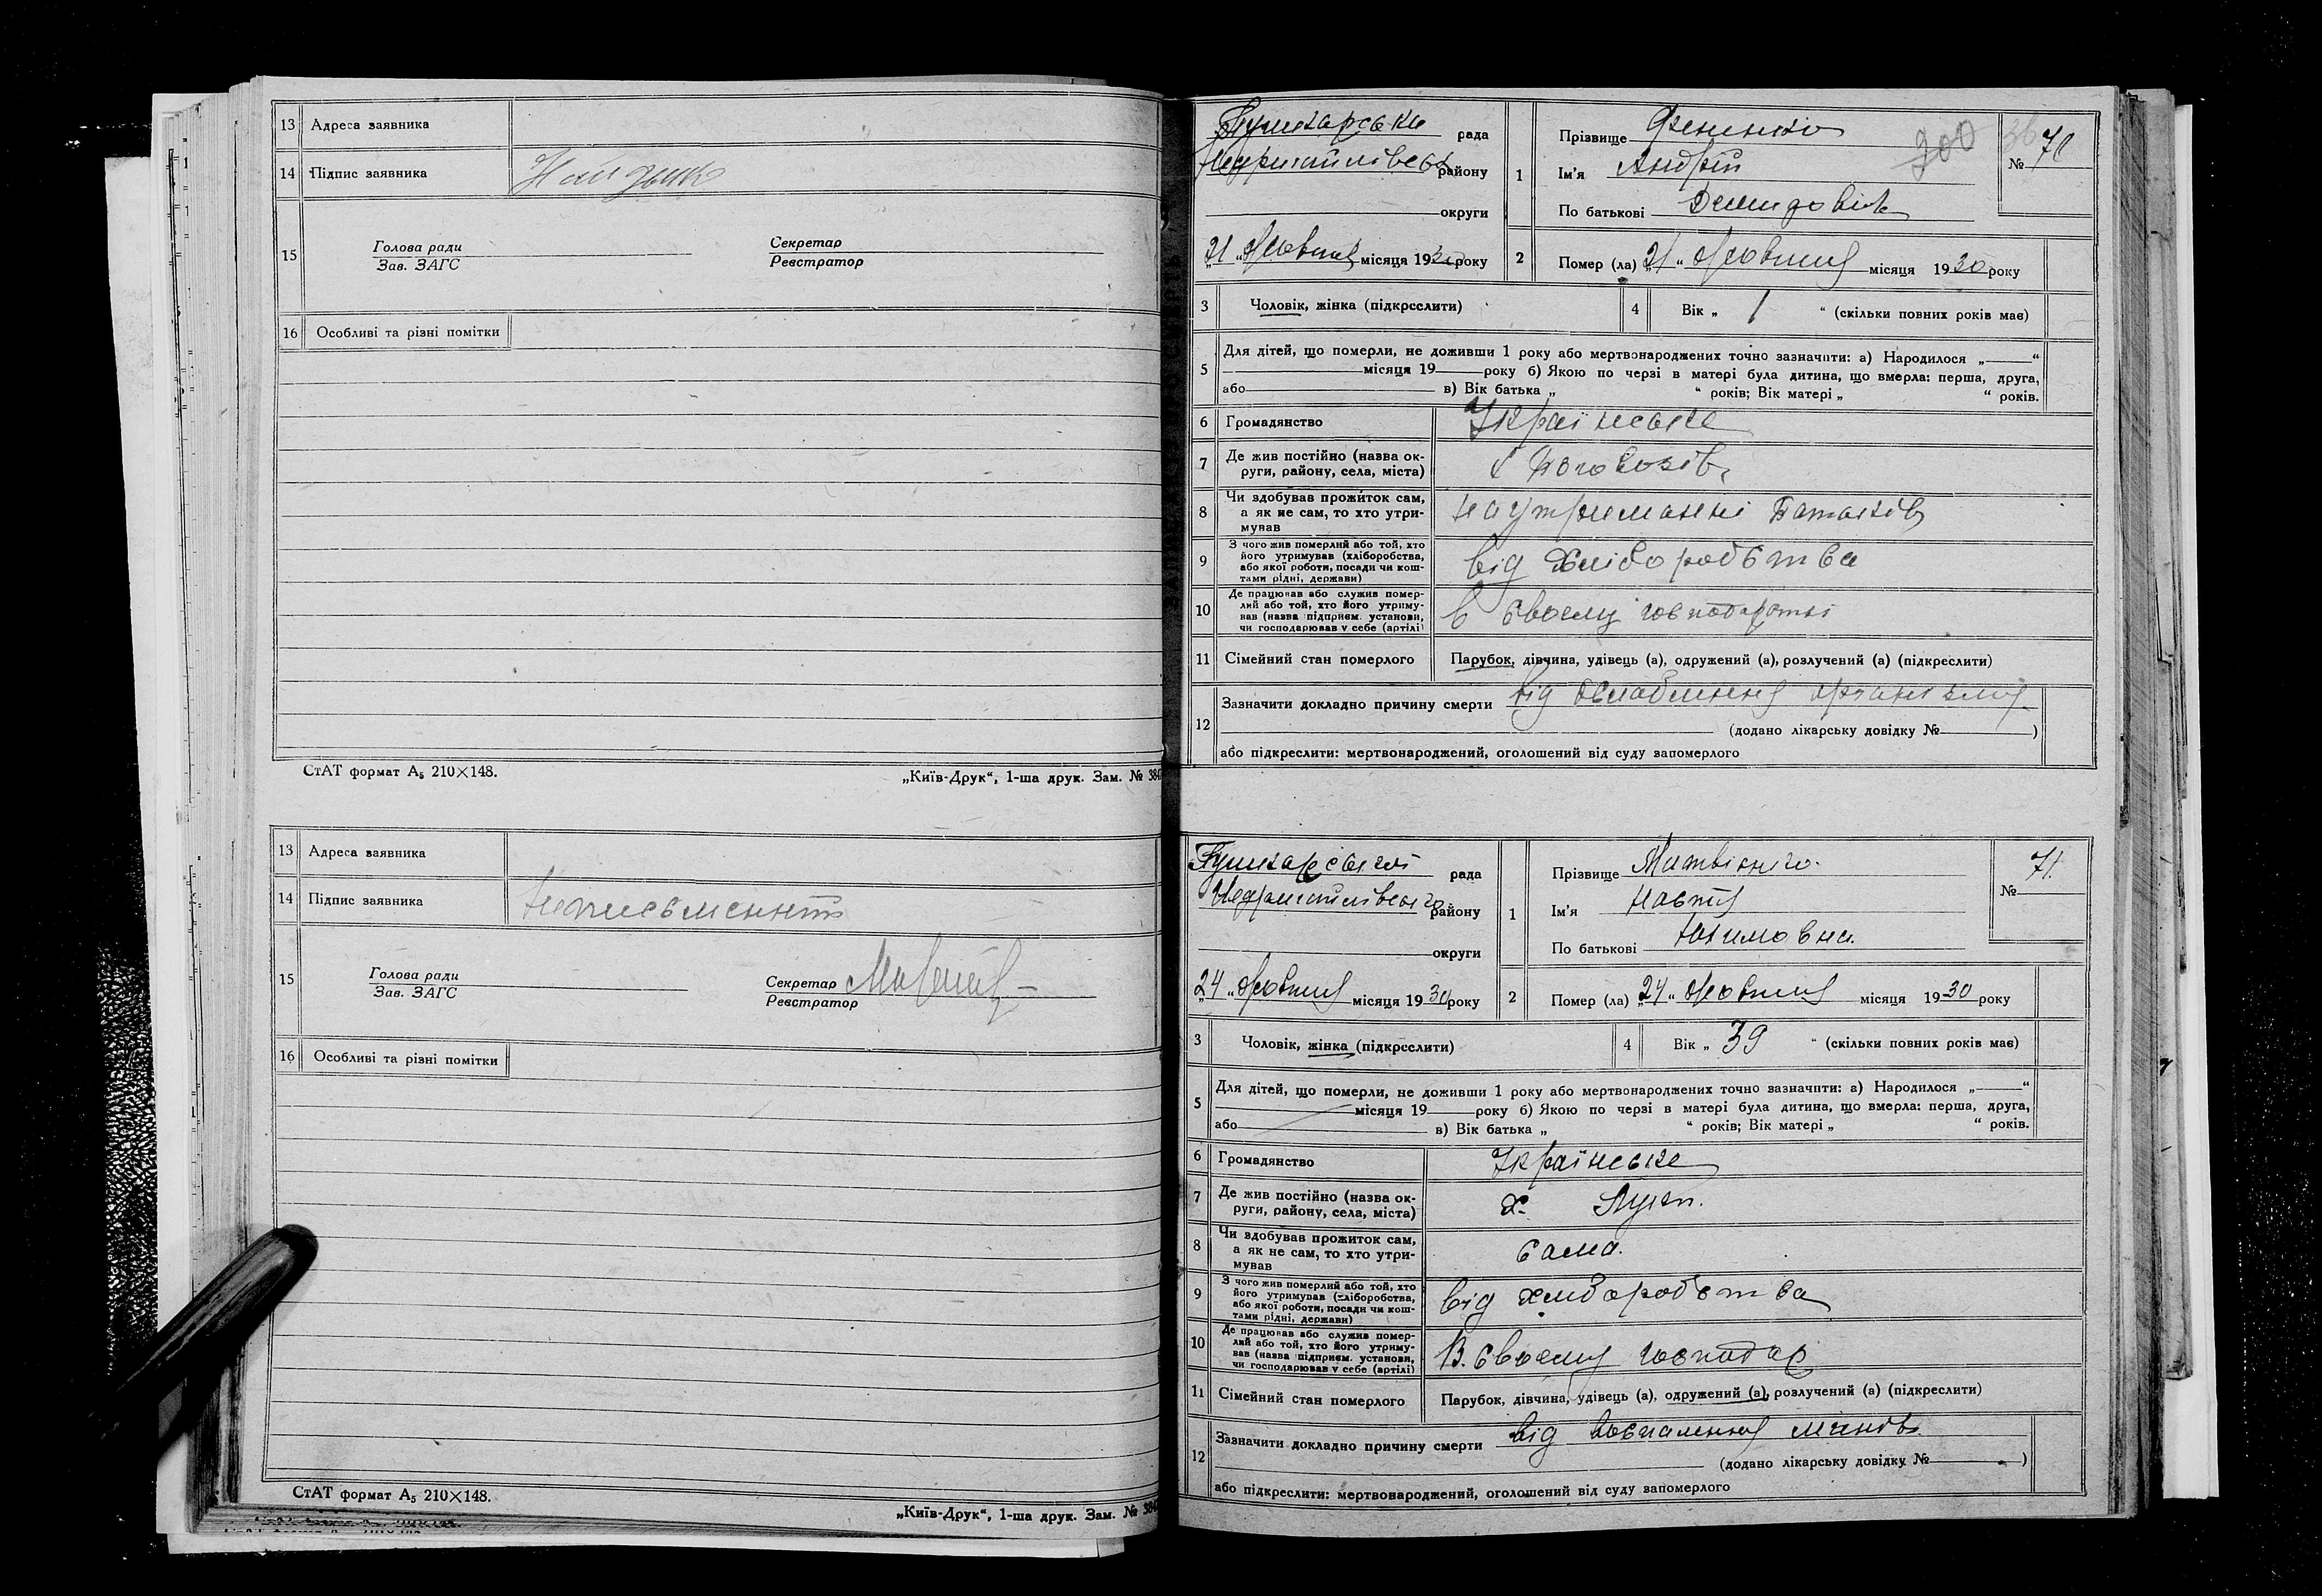 13 Адреса заявника
14 Підпис заявника
15 Голова ради
Зав. ЗАГС
Секретар
Реєстратор
16 Особливі та різні помітки
СтАТ формат А₅ 210×148.
„Київ-Друк“, 1-ша друк. Зам. №
13 Адреса заявника
14 Підпис заявника Неписьменний
15 Голова ради
Зав. ЗАГС
Секретар
Реєстратор
16 Особливі та різні помітки
СтАТ формат А₅ 210×148.
„Київ-Друк“, 1-ша друк. Зам. №
рада
району
округи
„21“ Жовтня місяця 1930 року
1 Прізвище
Ім'я Андрій
По батькові Демидовіч
№
200
2 Помер (ла) „21“ Жовтня місяця 1930 року
3 Чоловік, жінка (підкреслити)
4 Вік „ 1 “ (скільки повних років має)
5 Для дітей, що померли, не доживши 1 року або мертвонароджених точно зазначити: а) Народилося „ “
місяця 19 року б) Якою по черзі в матері була дитина, що вмерла: перша, друга,
або в) Вік батька „ “ років; Вік матері „ “ років.
6 Громадянство Українське
7 Де жив постійно (назва ок-
руги, району, села, міста)
8 Чи здобував прожиток сам,
а як не сам, то хто утри-
мував
на утриманні Батьків
9 З чого жив померлий або той, хто
його утримував (хліборобства,
або якої роботи, посади чи кош-
тами рідні, держави)
від Хліборобства
10 Де працював або служив помер-
лий або той, хто його утриму-
вав (назва підприєм. установи,
чи господарював у себе (артілі)
в своему господарстві
11 Сімейний стан померлого Парубок, дівчина, удівець (а), одружений (а), розлучений (а) (підкреслити)
12 Зазначити докладно причину смерти від ослаблення організму
(додано лікарську довідку № )
або підкреслити: мертвонароджений, оголошений від суду запомерлого
рада
району
округи
„24“ Жовтня місяця 1930 року
1 Прізвище
Ім'я Настя
По батькові Юхимовна.
№ 71
2 Помер (ла) „24“ Жовтня місяця 1930 року
3 Чоловік, жінка (підкреслити)
4 Вік „ 39 “ (скільки повних років має)
5 Для дітей, що померли, не доживши 1 року або мертвонароджених точно зазначити: а) Народилося „ “
місяця 19 року б) Якою по черзі в матері була дитина, що вмерла: перша, друга,
або в) Вік батька „ “ років; Вік матері „ “ років.
6 Громадянство Українське
7 Де жив постійно (назва ок-
руги, району, села, міста)
х.
8 Чи здобував прожиток сам,
а як не сам, то хто утри-
мував
сама.
9 З чого жив померлий або той, хто
його утримував (хліборобства,
або якої роботи, посади чи кош-
тами рідні, держави)
від хліборобства
10 Де працював або служив помер-
лий або той, хто його утриму-
вав (назва підприєм. установи,
чи господарював у себе (артілі)
В. своему господар
11 Сімейний стан померлого Парубок, дівчина, удівець (а), одружений (а), розлучений (а) (підкреслити)
12 Зазначити докладно причину смерти від воспалення
(додано лікарську довідку № )
або підкреслити: мертвонароджений, оголошений від суду запомерлого